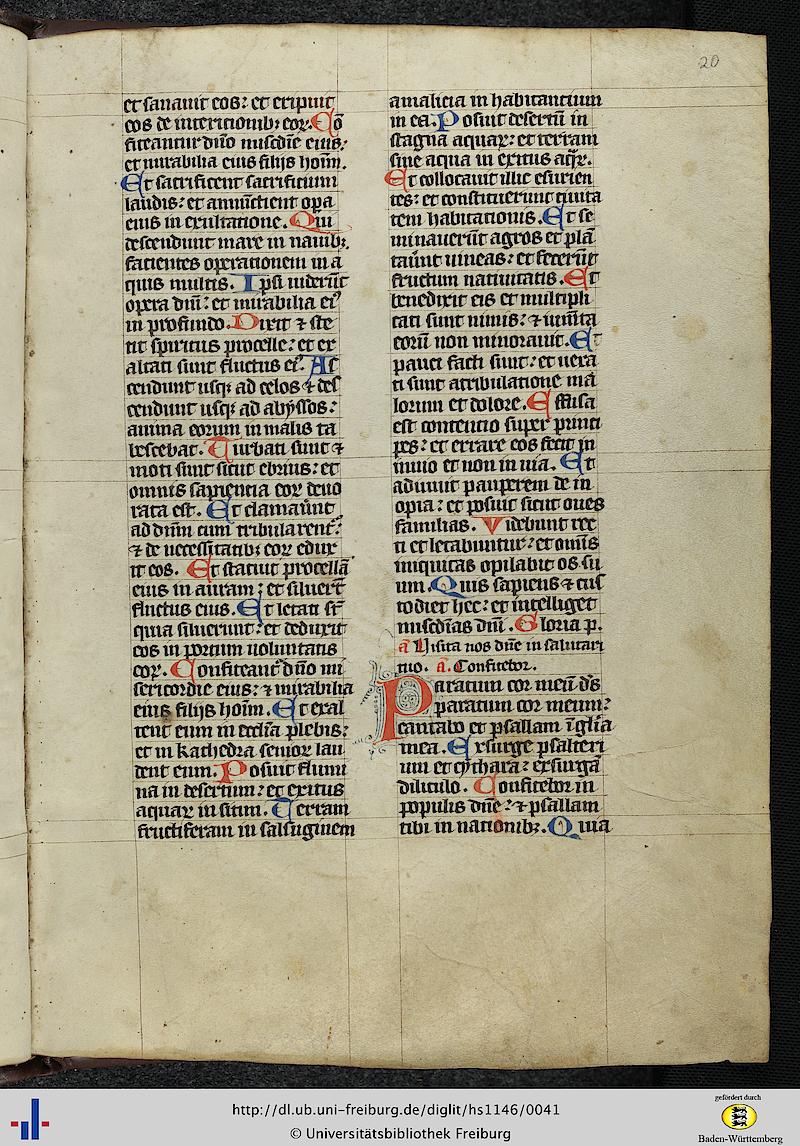 20
et sanauit eos: et eripuit
eos de interitionibꝫ eoꝝ. Cō
fiteantur dn̄o miscd̄ie eius:
et mirabilia eius filijs hoīm.
Et sacrificent sacrificium
laudis: et annūctient opa
eius in exultatione. Qui
descendunt mare in nauibꝫ.
facientes operationem in a
quis multis. Ipsi uiderūt
opera dn̄i: et mirabilia eiꝰ
in profundo. Dixit ⁊ ste
tit spiritus procelle: et ex
altati sunt fluctus eiꝰ. As
cendunt usqꝫ ad celos ⁊ des
cendunt usqꝫ ad abyssos:
anima eorum in malis ta
bescebat. Turbati sunt ⁊
moti sunt sicut ebrius: et
omnis sapientia eoꝝ deuo
rata est. Et clamauṙut
ad dn̄m cum tribularent᷑:
⁊ de necessitatibꝫ eoꝝ edux
it eos. Et statuit procellā
eius in auram: et siluer̄t
fluctus eius. Et letati sr̄
quia siluerunt: et deduxit
eos in portum uoluntatis
eoꝝ. Confiteant᷑ dn̄o mi
sericordie eius: ⁊ mirabilia
eius filijs hoīm. Et exal
tent eum in eccl̄ia plebis:
et in kathedra senioꝝ lau
dent eum. Posuit flumi
na in desertum: et exitus
aquaꝝ in sitim. Terram
fructiferam in salsuginem
amalicia in habitantium
in ea. Posuit desertū in
stagna aquaꝝ: et terram
sine aqua in exitus aq̄ꝝ.
Et collocauit illic esurien
tes: et constituerunt ciuita
tem habitationis. Et se
minauerūt agros et plā
tauṙt uineas: et fecerūt
fructum natiuitatis. Et
benedixit eis et multipli
cati sunt nimis: ⁊ iumēta
eorū non minorauit. Et
pauci facti sunt: et uexa
ti sunt atribulatione ma
lorum et dolore. Effusa
est contentio super princi
pes: et errare eos fecit in
inuio et non in uia. Et
adiuuit pauperem de in
opia: et posuit sicut oues
familias. Videbunt rec
ti et letabuntur: et om̄is
iniquitas opilabit os su
um. Quis sapiens ⁊ cus
todiet hec: et intelliget
miscd̄ias dn̄i. Gloria p.
a Uisita nos dn̄e in salutari
tuo. a. Confitebor.
Paratum cor meū ds̄
paratum cor meum:
cantabo et psallam ī gl̄ia
mea. Exsurge psalteri
um et cythara: exsurgā
diliculo. Confitebor in
populis dn̄e: ⁊ psallam
tibi in nationibꝫ. Quia
http://dl.ub.uni-freiburg.de/diglit/hs1146/0041
© Universitätsbibliothek Freiburg
gefördert durch
Baden-Württemberg